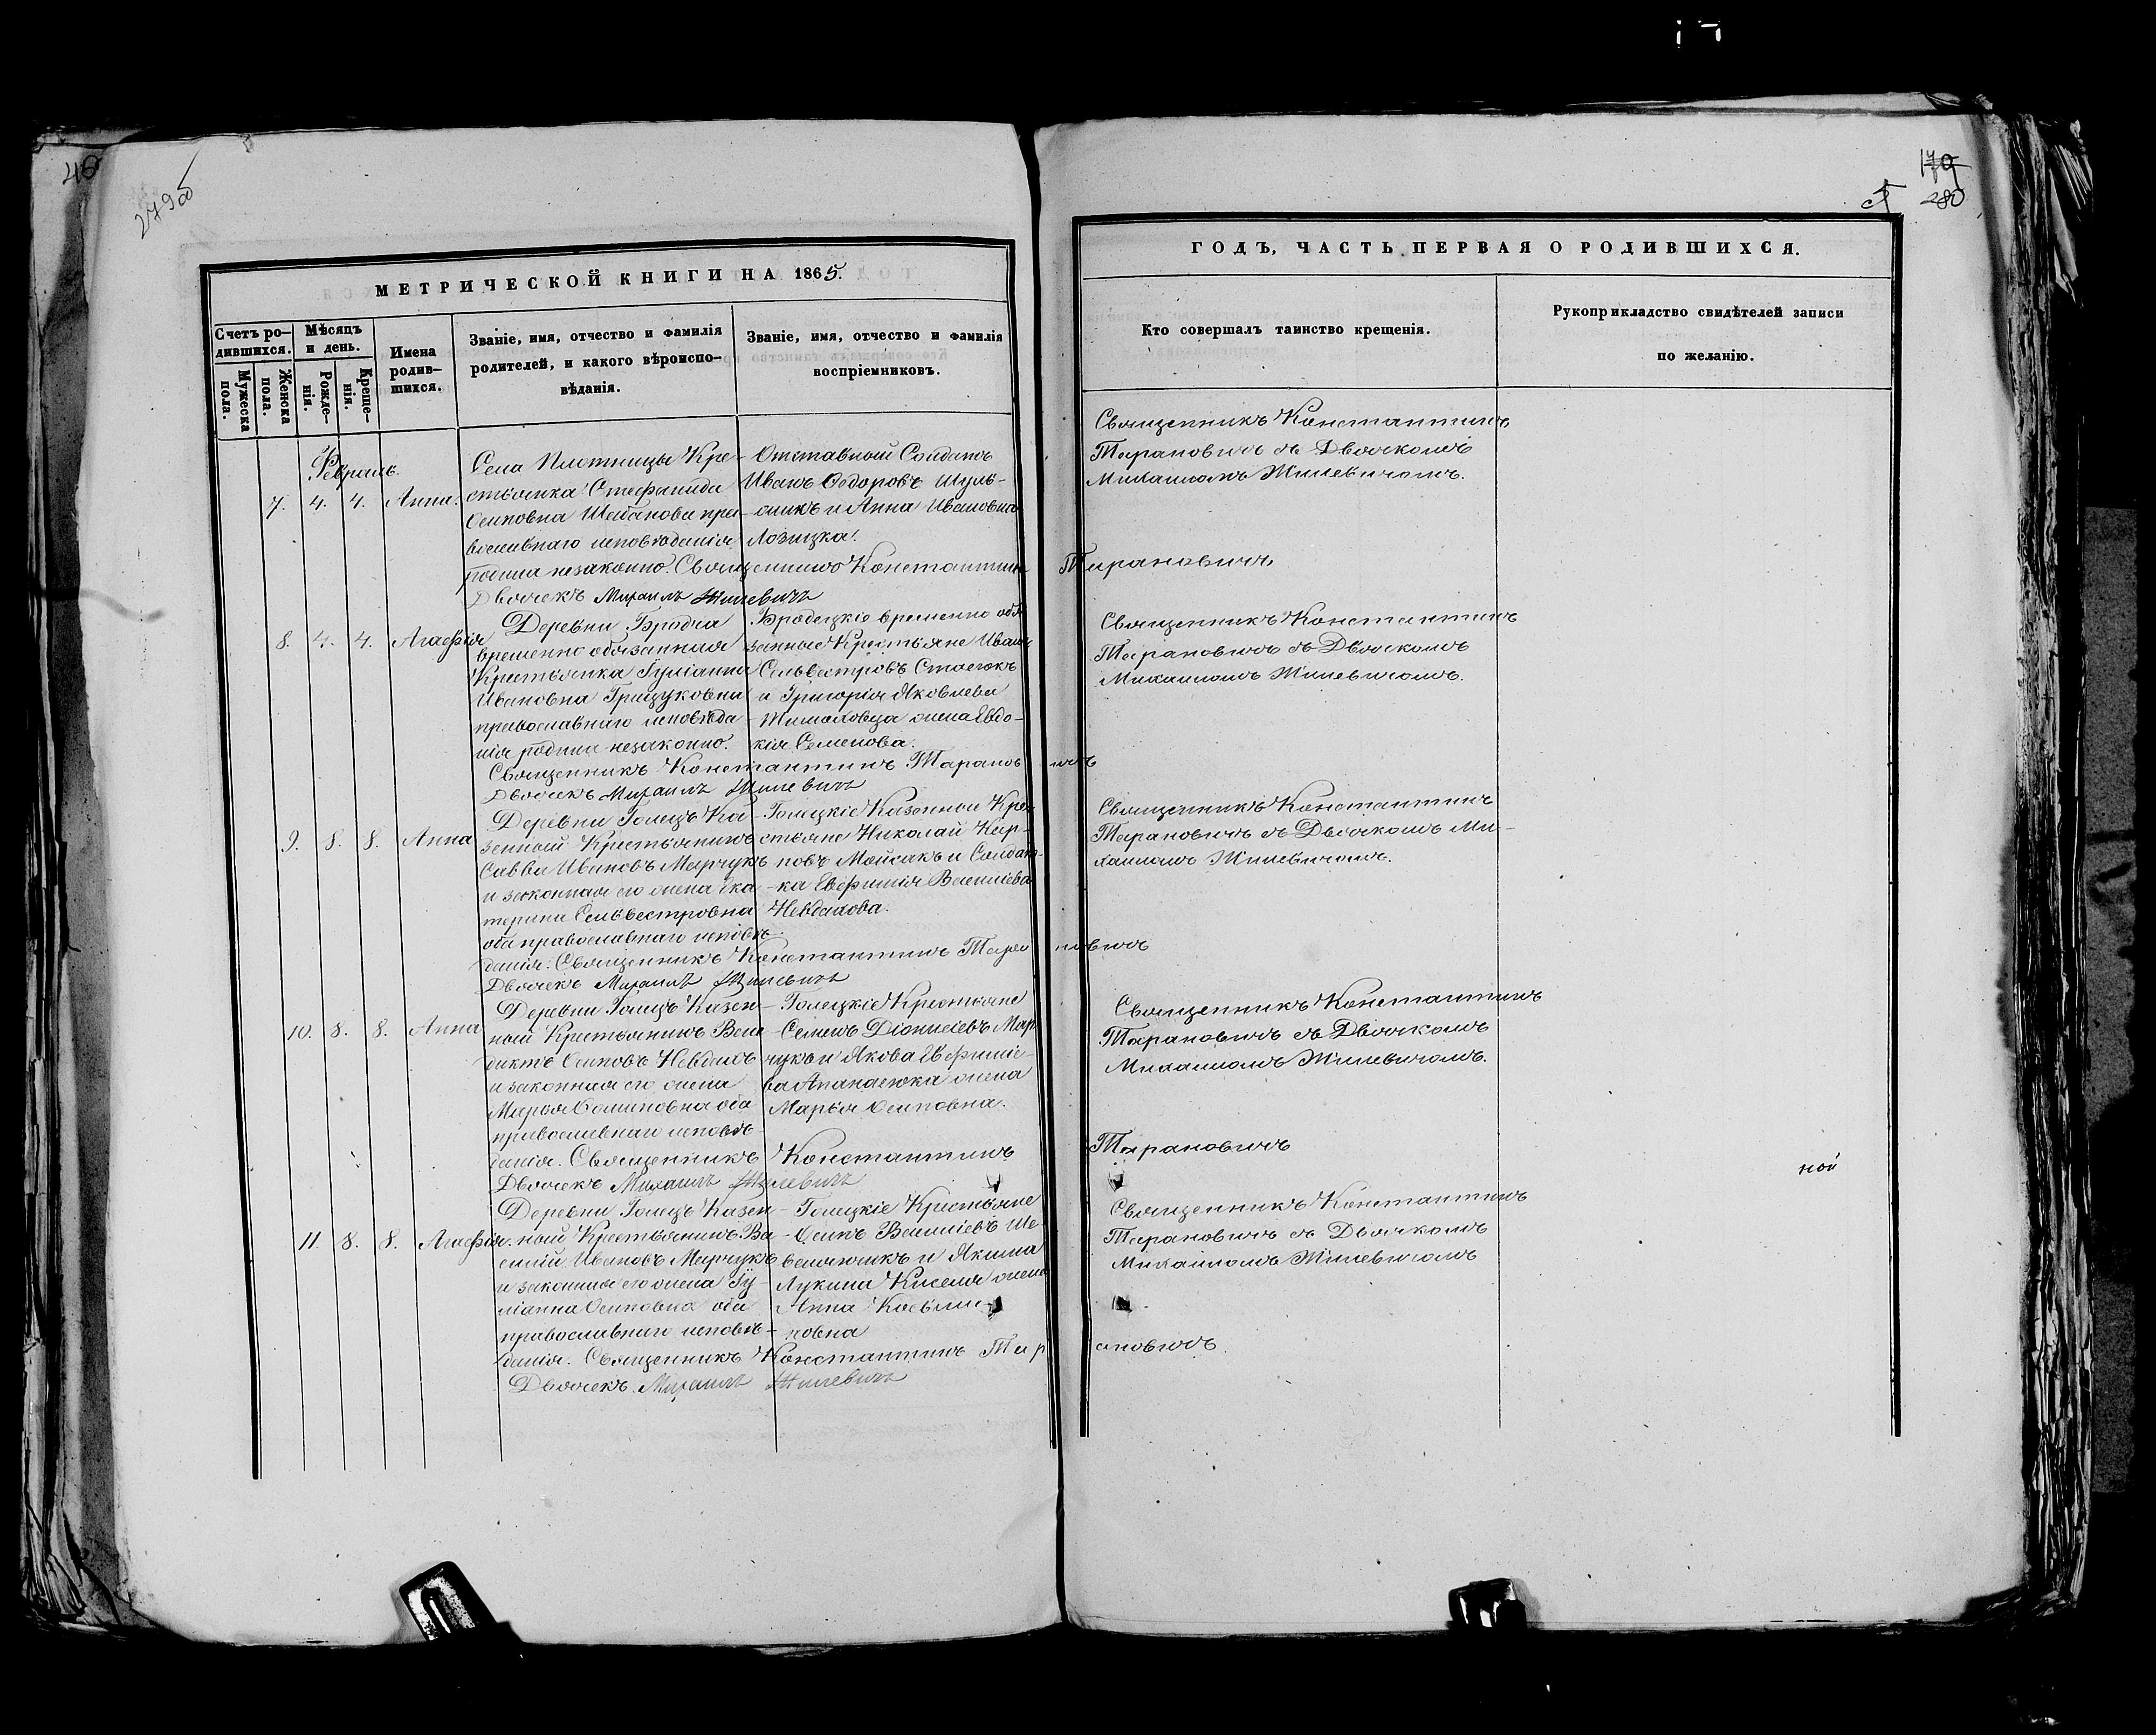 46
279об
179
280
МЕТРИЧЕСКОЙ КНИГИ НА 1865.
Счетъ ро-
дившихся.
Мужеска
пола.
Женска
пола.
Мѣсяцъ
и день.
Рожде-
нія.
Креще-
нія.
Имена
родив-
шихся.
Званіе, имя, отчество и фамилія
родителей, и какого вѣроиспо-
вѣданія.
Званіе, имя, отчество и фамилія
воспріемниковъ.
ГОДЪ, ЧАСТЬ ПЕРВАЯ О РОДИВШИХСЯ.
Кто совершалъ таинство крещенія.
Рукоприкладство свидѣтелей записи
по желанію.
Февраль.
7. 4. 4. Анна.
Села Плотницы Кре-
стьянка Стефанида
Осиповна пра-
вославнаго исповѣданія
родила незаконно. Священникъ Константинъ Тарановичъ
Дьячекъ Михаилъ Жилевичъ
Отставной Солдатъ
Иванъ Ѳедоровъ Шуль-
и Анна Ивановна
Лозицка.
Священникъ Константинъ
Тарановичъ съ Дьячкомъ
Михаиломъ Жилевичомъ.
8. 4. 4. Агафія
Деревни Бродча
временно обязанная
Крестьянка Іуліанна
Ивановна Грицуковна
православнаго исповѣда-
нія родила незаконно.
Священникъ Константинъ Тарановичъ
Дьячекъ Михаилъ Жилевичъ
Бродецкіе временно обя-
занные Крестьяне Иванъ
Сельвестровъ
и Григорія Яковлева
жена Евдо-
кія Семенова.
Священникъ Константинъ
Тарановичъ съ Дьячкомъ
Михаиломъ Жилевичомъ.
9. 8. 8. Анна
Деревни Голецъ Ка-
зенный Крестьянинъ
Савва Ивановъ Марчукъ
и законная его жена Ека-
терина Сельвестровна
оба православнаго исповѣ-
данія: Священникъ Константинъ Тарановичъ
Дьячекъ Михаилъ Жилевичъ
Голецкіе Казенные Кре-
стьяне Николай Кар-
повъ Мойсакъ и Солдат-
ка Евфимія Василіева
Невдахова.
Священникъ Константинъ
Тарановичъ съ Дьячкомъ Ми-
хаиломъ Жилевичомъ.
10. 8. 8. Анна
Деревни Голецъ Казен-
ный Крестьянинъ Вене-
диктъ Осиповъ Невдахъ
и законная его жена
Марія оба
православнаго исповѣ-
данія. Священникъ Константинъ Тарановичъ
Дьячекъ Михаилъ Жилевичъ
Голецкіе Крестьяне
Семенъ Діонисіевъ Мар-
чукъ и Якова Евфиміе-
ва жена
Марья Осиповна.
Священникъ Константинъ
Тарановичъ съ Дьячкомъ
Михаиломъ Жилевичомъ.
ной
11. 8. 8. Агафія.
Деревни Голецъ Казен-
ный Крестьянинъ Ва-
силій Ивановъ Марчукъ
и законная его жена Іу-
ліанна Осиповна оба
православнаго исповѣ-
данія. Священникъ Константинъ Тарановичъ
Дьячекъ Михаилъ Жилевичъ
Голецкіе Крестьяне
Осипъ Василіевъ
и Якима
Лукина Киселя жена
Анна
Священникъ Константинъ
Тарановичъ съ Дьячкомъ
Михаиломъ Жилевичомъ